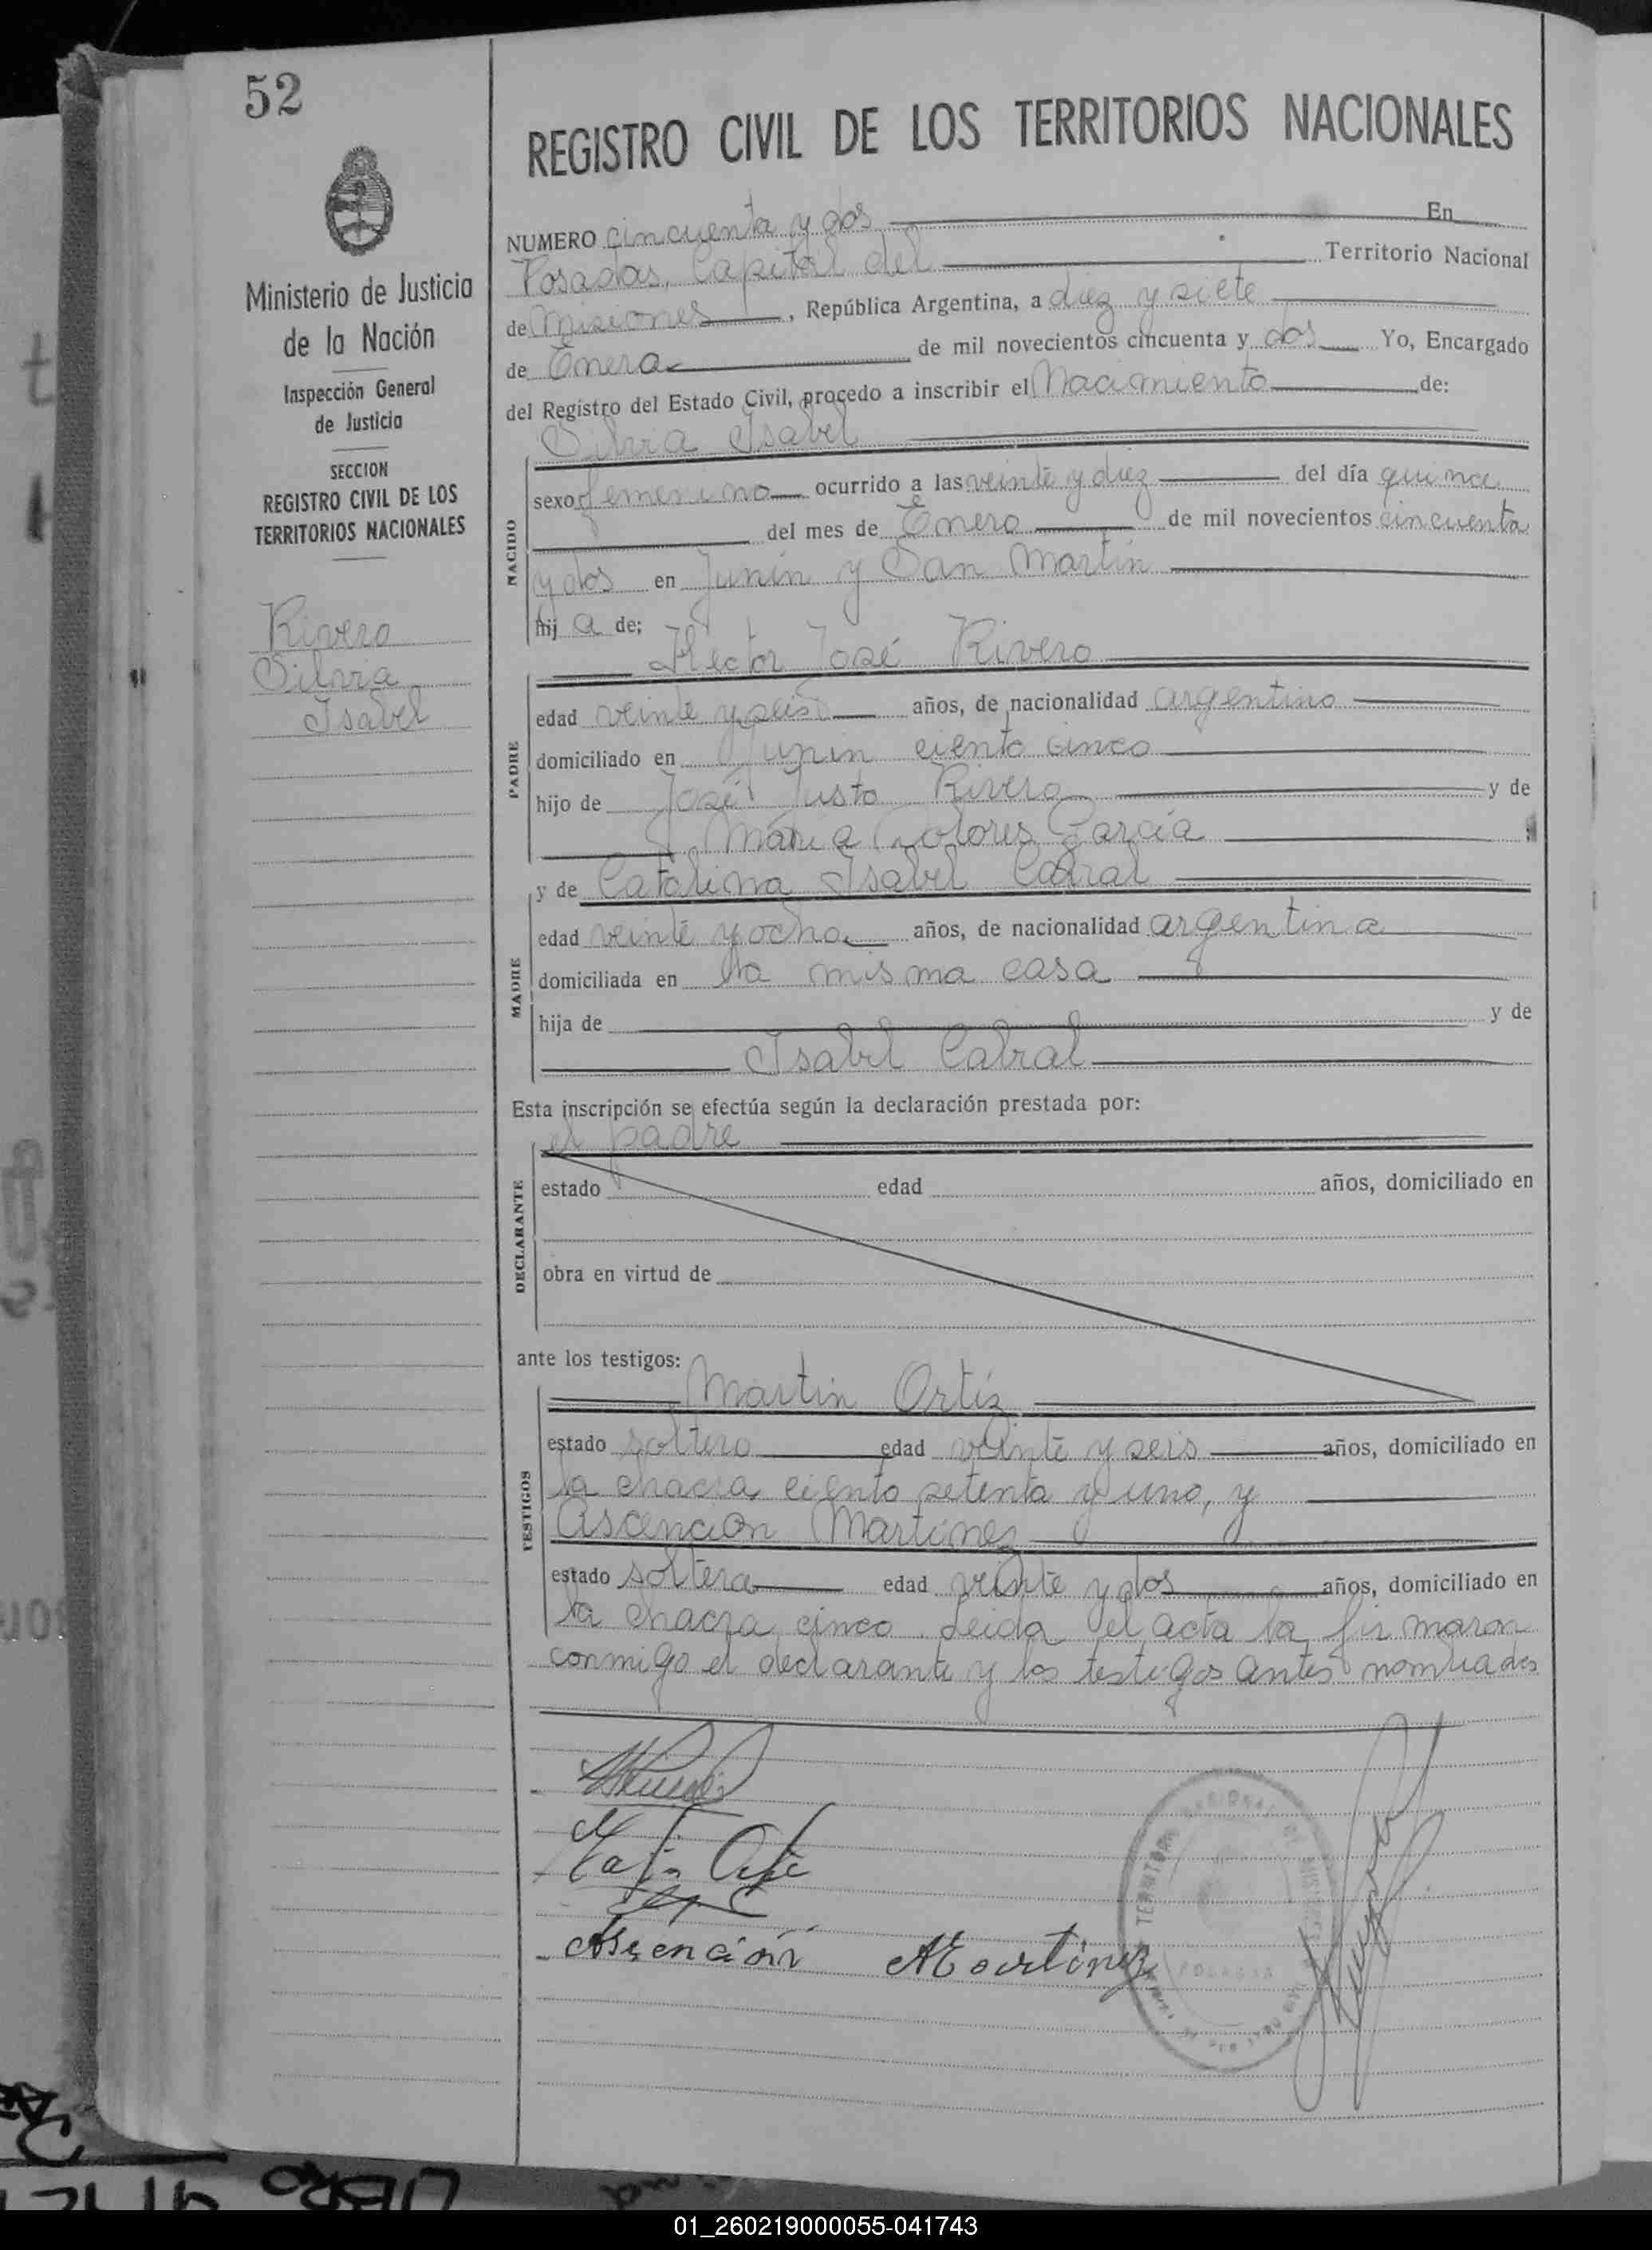 52
Ministerio de Justicia
de la Nación
Inspección General
de Justicia
SECCION
REGISTRO CIVIL DE LOS
TERRITORIOS NACIONALES
Rivero
Silvia
Isabel
REGISTRO CIVIL DE LOS TERRITORIOS NACIONALES
NUMERO cincuenta y dos En
Posadas, Capital del Territorio Nacional
de Misiones, República Argentina, a diez y siete
de Enero de mil novecientos cincuenta y dos Yo, Encargado
del Registro del Estado Civil, procedo a inscribir el Nacimiento de:
Silvia Isabel
NACIDO
sexo femenino ocurrido a las veinte y diez del día quince
del mes de Enero de mil novecientos cincuenta
y dos en Junín y San Martín
hij a de;
Hector José Rivero
PADRE
edad veinte y seis años, de nacionalidad argentino
domiciliado en Junin ciento cinco
hijo de José Justo Rivero y de
Maria Dolores García
y de Catalina Isabel Cabral
MADRE
edad veinte y ocho años, de nacionalidad argentina
domiciliada en la misma casa
hija de y de
Isabel Cabral
Esta inscripción se efectúa según la declaración prestada por:
el padre
DECLARANTE
estado edad años, domiciliado en
obra en virtud de
ante los testigos:
Martin Ortíz
TESTIGOS
estado soltero edad veinte y seis años, domiciliado en
la chacra ciento setenta y uno, y
Ascencion Martinez
estado soltera edad veinte y dos años, domiciliado en
la chacra cinco. Leida el acta la firmaron
conmigo el declarante y los testigos antes nombrados
Ascención Martinez
TERRITORIO NACIONAL DE MISIONES
POSADAS
01_260219000055-041743